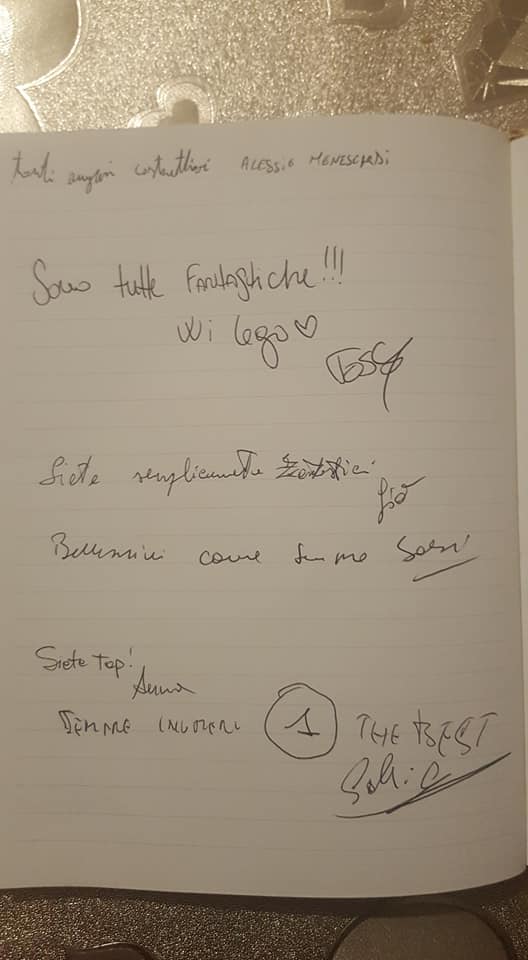 tanti auguri costruttivi ALESSIO MENESCARDI
Sono tutte FANTASTICHE!!!
Wi lego♡
Siete semplicemente fantastici
Giò
Bellissimi come sempre
Siete Top!
Anna
SEMPRE I NUMERI 1 THE BEST